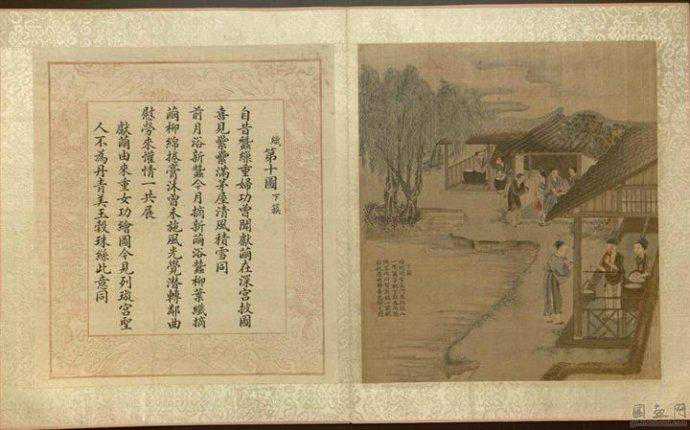 織 第十圖 下簇
自昔蠶繅重婦功曾聞獻繭在深宮披圖
喜見纍纍滿茅屋清風積雪同
前月浴新蠶今月摘新繭浴蠶柳葉纖摘
繭柳綿捲膏沐曾未施風光覺潛轉鄰曲
慰勞來懽情一共展
獻繭由來重女功繪圖今見列璇宮聖
人不為丹青美玉穀珠絲此意同